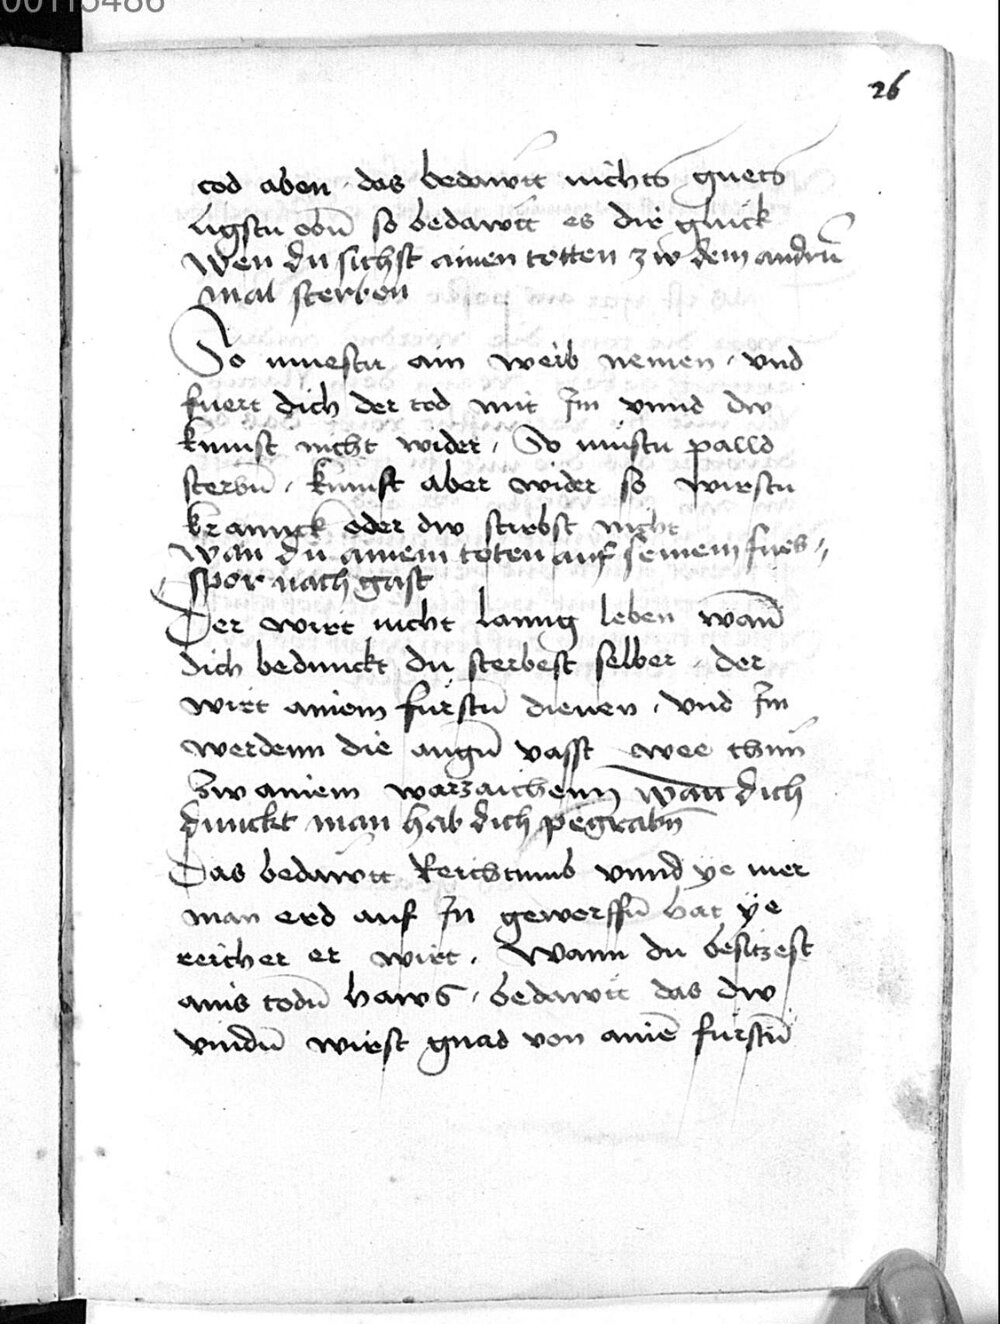 00115486
26
tod aben · das bedawtt nichts guets
ligstu obn̄ so bedawtt es dir gluck
Wen du sichst ainen totten zw dem andrn̄
mal sterben
So muestu ain weib nemen · vnd
fuert dich der tod mit Im vnnd dw
kumst nicht wider · So mustu palld
sterbn̄ · kumst aber wider so wirstu
kranngk oder dw stirbst nicht
Wan du ainem toten auf seinem fues //
spor nach gast
Der wirt nicht lanng leben wan̄
dich bedunckt du sterbest selber · der
wirt ainem fürstn̄ dienen · vnd Im
werdenn die augn̄ vasst wee thun
Zw ainem warzaichenn wan dich
dunckt man hab dich pegrabn̄
Das bedawtt Reichtumb vnnd ye mer
man erd auf In geworffn̄ hat ye
reicher er wirt · Wann du besitzest
ains todn̄ haws · bedawtt das dw
vindn̄ wirst gnad von ainē fürstn̄